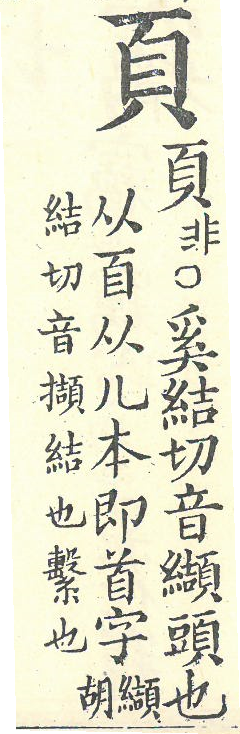 頁
頁非○奚結切音纈頭也
从𦣻从儿本即首字纈胡
結切音擷結也繫也